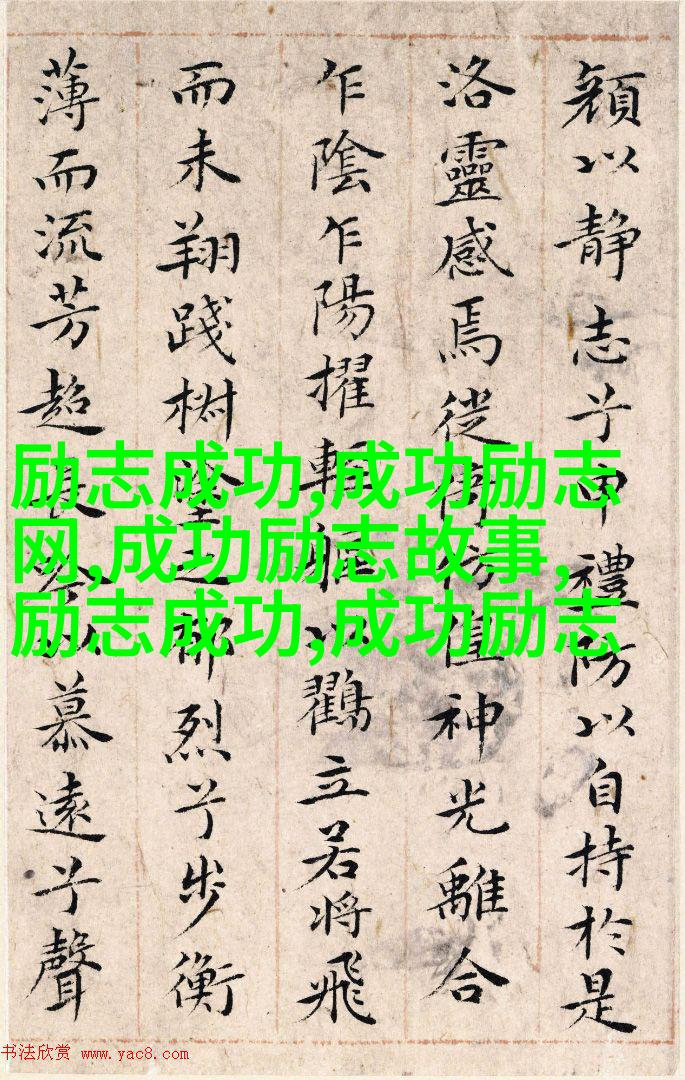 顔以静志兮申禮防以自持於是
洛靈感焉徙神光離合
乍陰乍陽擢輕軀以鸛立若将飛
而未翔踐椒塗之烈兮步衡
薄而流芳超長吟以慕遠兮聲
励志成功,成功励志
网,成功励志故事,
励志成功,成功励志
书法欣赏 www.yac8.com